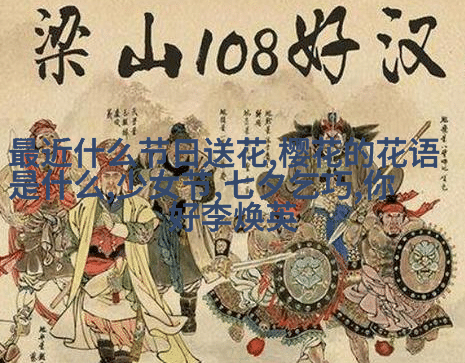 梁山108好汉
最近什么节日送花,樱花的花语
是什么,少女节,七夕乞巧,你
好李焕英